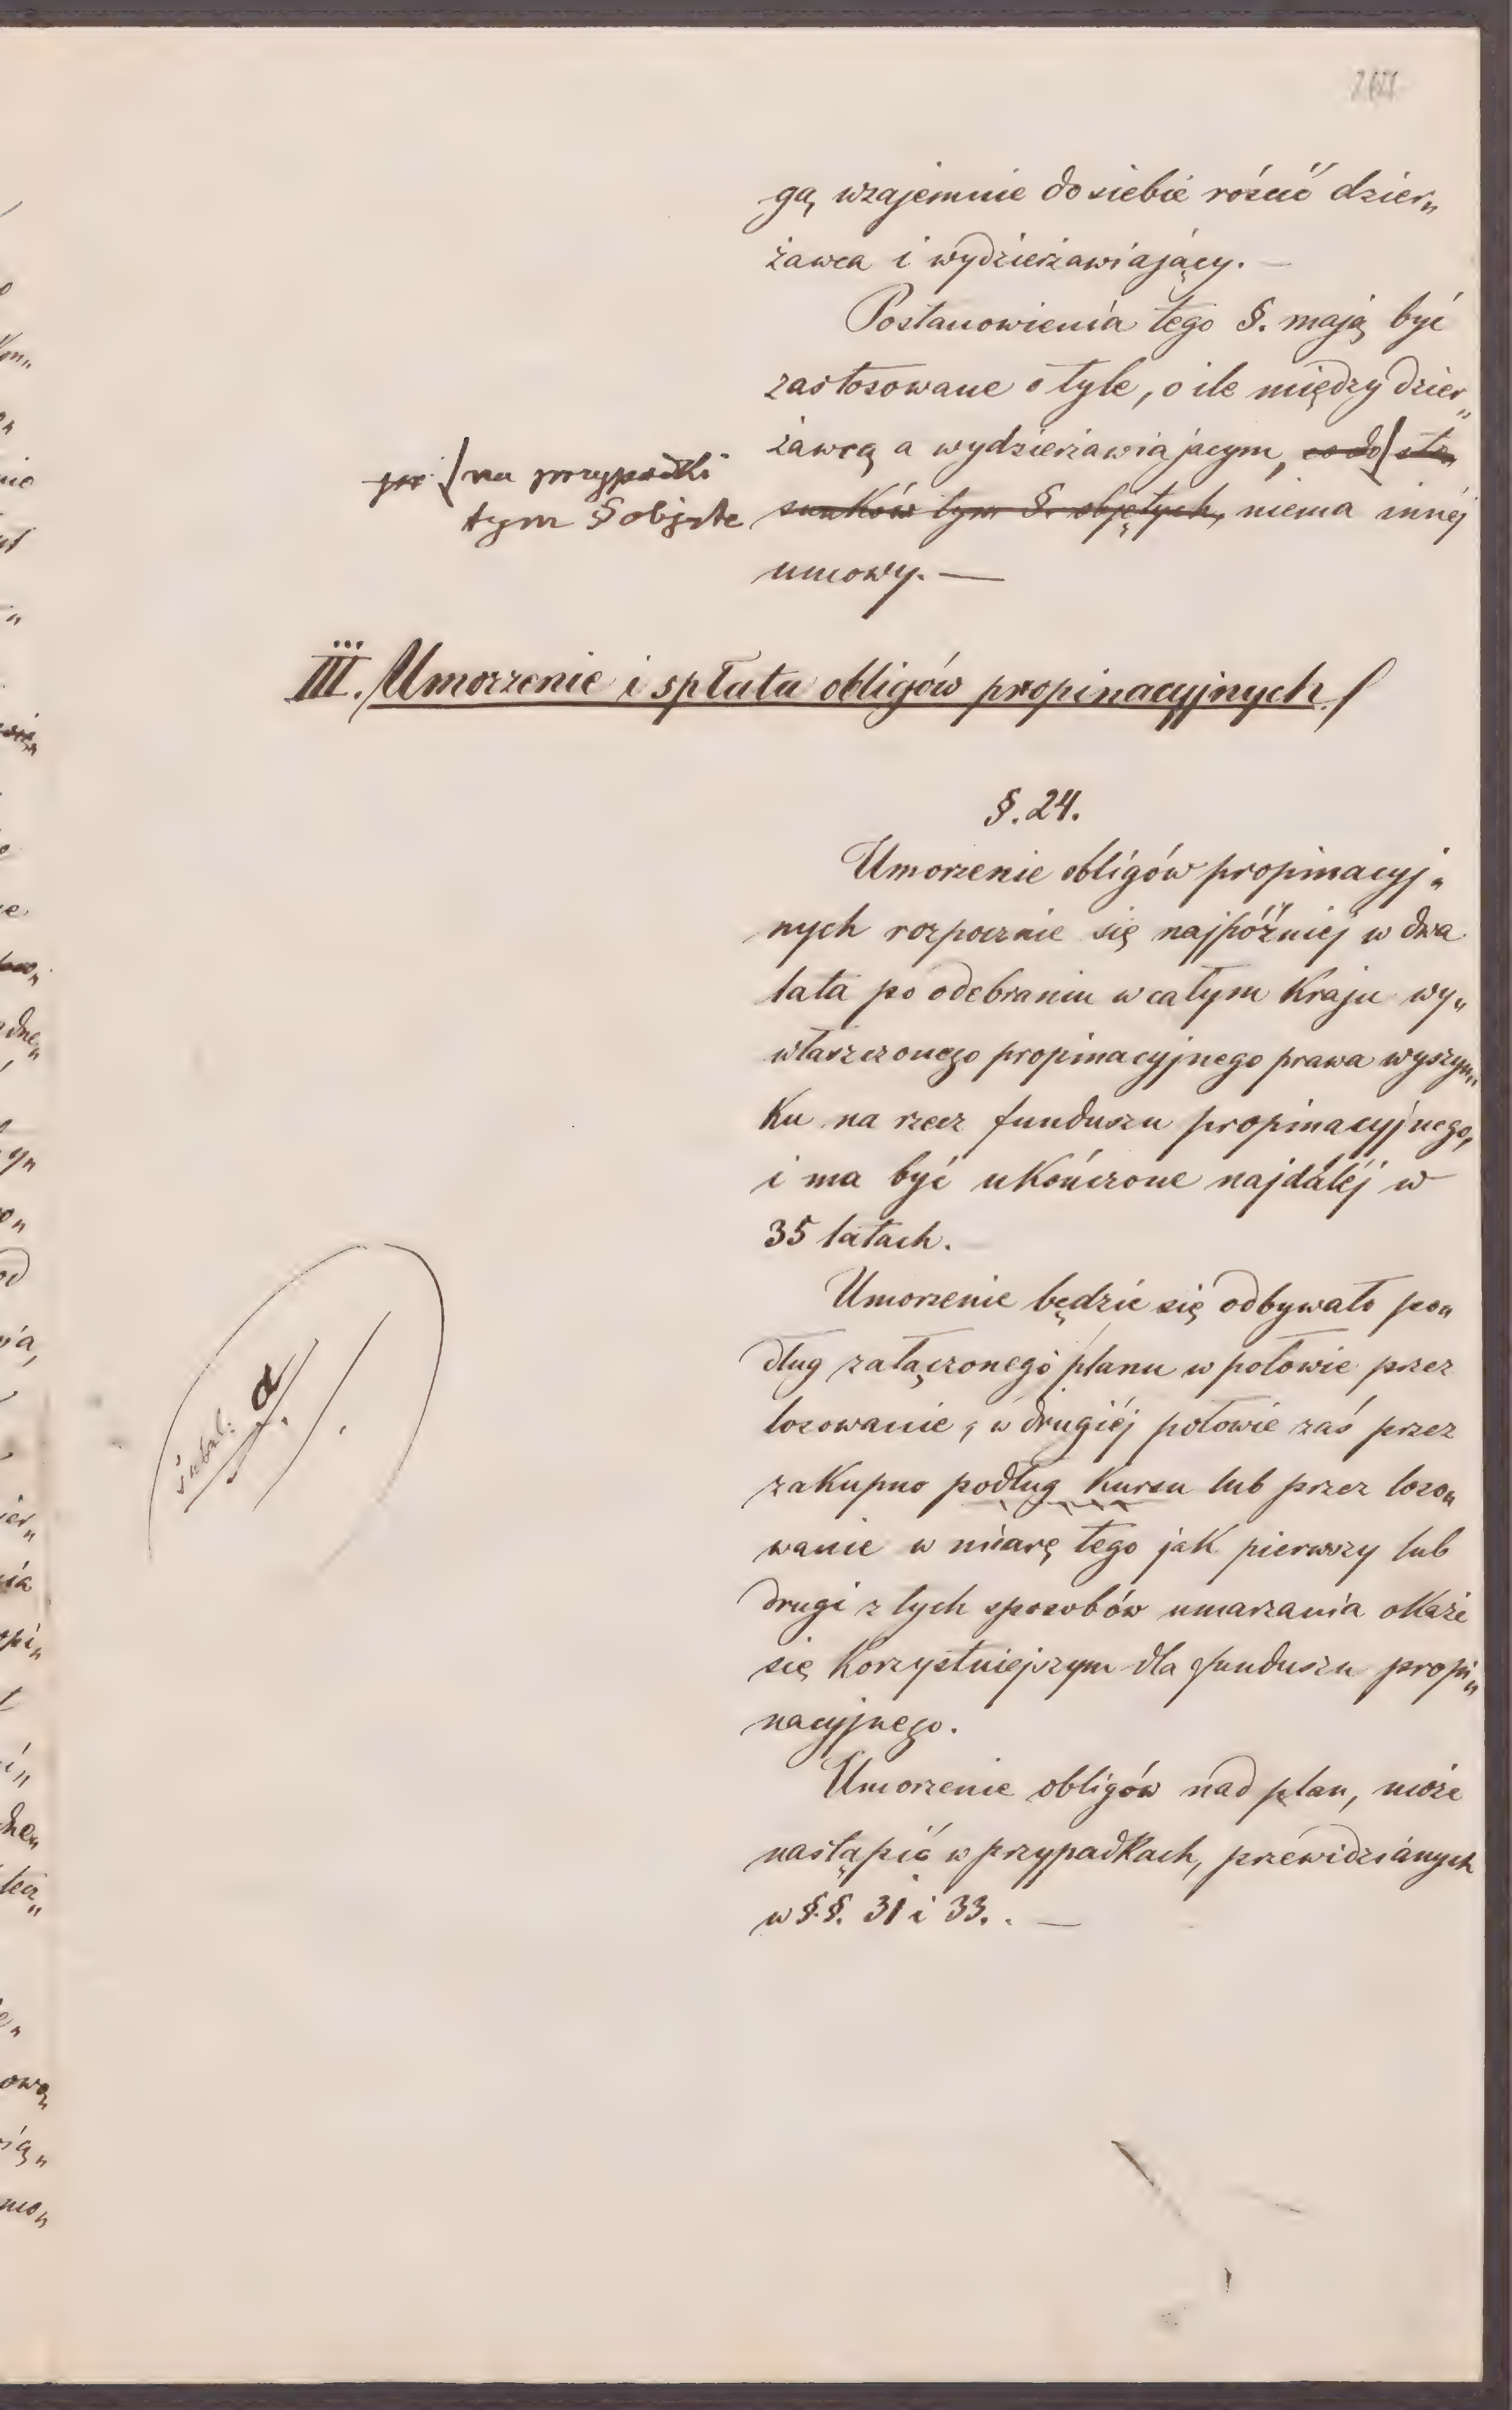 gą wzajemnie do siebie rościć dzier„
żawca i wydzierżawiający. —
Postanowienia tego §. mają być
zastosowane o tyle, o ile między dzier„
żawcą a wydzierżawiającym, co do sto„
sunków tym §. objętych, niema innéj
umowy. —
na przypadki
tym § objęte
III. Umorzenie i spłata obligów propinacyjnych.
§. 24.
Umorzenie obligów propinacyj„
nych rozpocznie się najpóźniéj w dwa
lata po odebraniu w całym Kraju wy„
właszczonego propinacyjnego prawa wyszyn„
ku na rzecz funduszu propinacyjnego,
i ma być ukończone najdaléj w
35 latach.
Umorzenie będzie się odbywało po„
dług załączonego planu w połowie przez
losowanie, w drugiéj połowie zaś przez
zakupno podług Kursu lub przez loso„
wanie w miarę tego jak pierwszy lub
drugi z tych sposobów umarzania okaże
się Korzystniejszym dla funduszu propi„
nacyjnego.
a
Umorzenie obligów nad plan, może
nastąpić w przypadkach, przewidzianych
w §.§. 31 i 33. . —